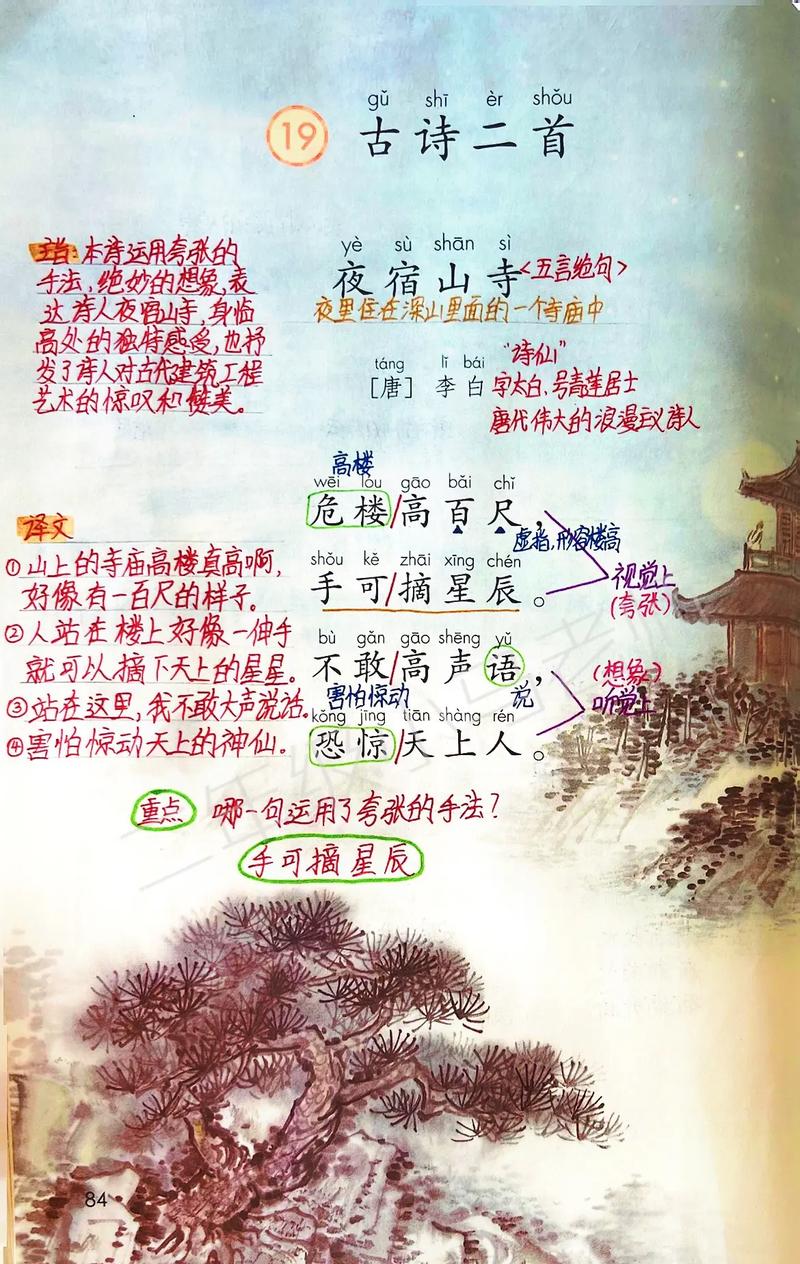 gǔ shī èr shǒu
19 古诗二首
yè sù shān sì
夜宿山寺<五言绝句>
夜里住在深山里面的一个寺庙中
táng lǐ bái
[唐] 李白
"诗仙"
字太白,号青莲居士
唐代伟大的浪漫主义诗人
主旨:本诗运用夸张的
手法,绝妙的想象,表
达诗人夜宿山寺,身临
高处的独特感受,也抒
发了诗人对古代建筑工程
艺术的惊叹和赞美。
高楼
wēi lóu gāo bǎi chǐ
危楼/高百尺,
虚指,形容楼高
shǒu kě zhāi xīng chén
手可/摘星辰。
视觉上
(夸张)
bù gǎn gāo shēng yǔ
不敢/高声语,
害怕惊动
说
(想象)
听觉上
kǒng jīng tiān shàng rén
恐惊/天上人。
译文
①山上的寺庙高楼真高啊,
好像有一百尺的样子。
②人站在楼上好像一伸手
就可以摘下天上的星星。
③站在这里,我不敢大声说话。
④害怕惊动天上的神仙。
重点 哪一句运用了夸张的手法?
手可摘星辰
84